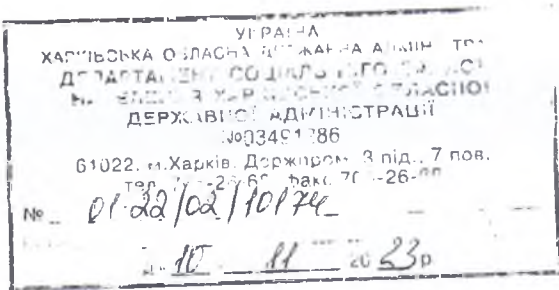 УКРАЇНА
ХАРКІВСЬКА ОБЛАСНА ДЕРЖАВНА
ДЕПАРТАМЕНТ СОЦІАЛЬНОГО ЗАХИСТУ
НАСЕЛЕННЯ ХАРКІВСЬКОЇ ОБЛАСНОЇ
ДЕРЖАВНОЇ АДМІНІСТРАЦІЇ
61022, м.Харків, Держпром, 3 під., 7 пов.
тел. факс
№ 01-22/02/10174
10 11 2023р